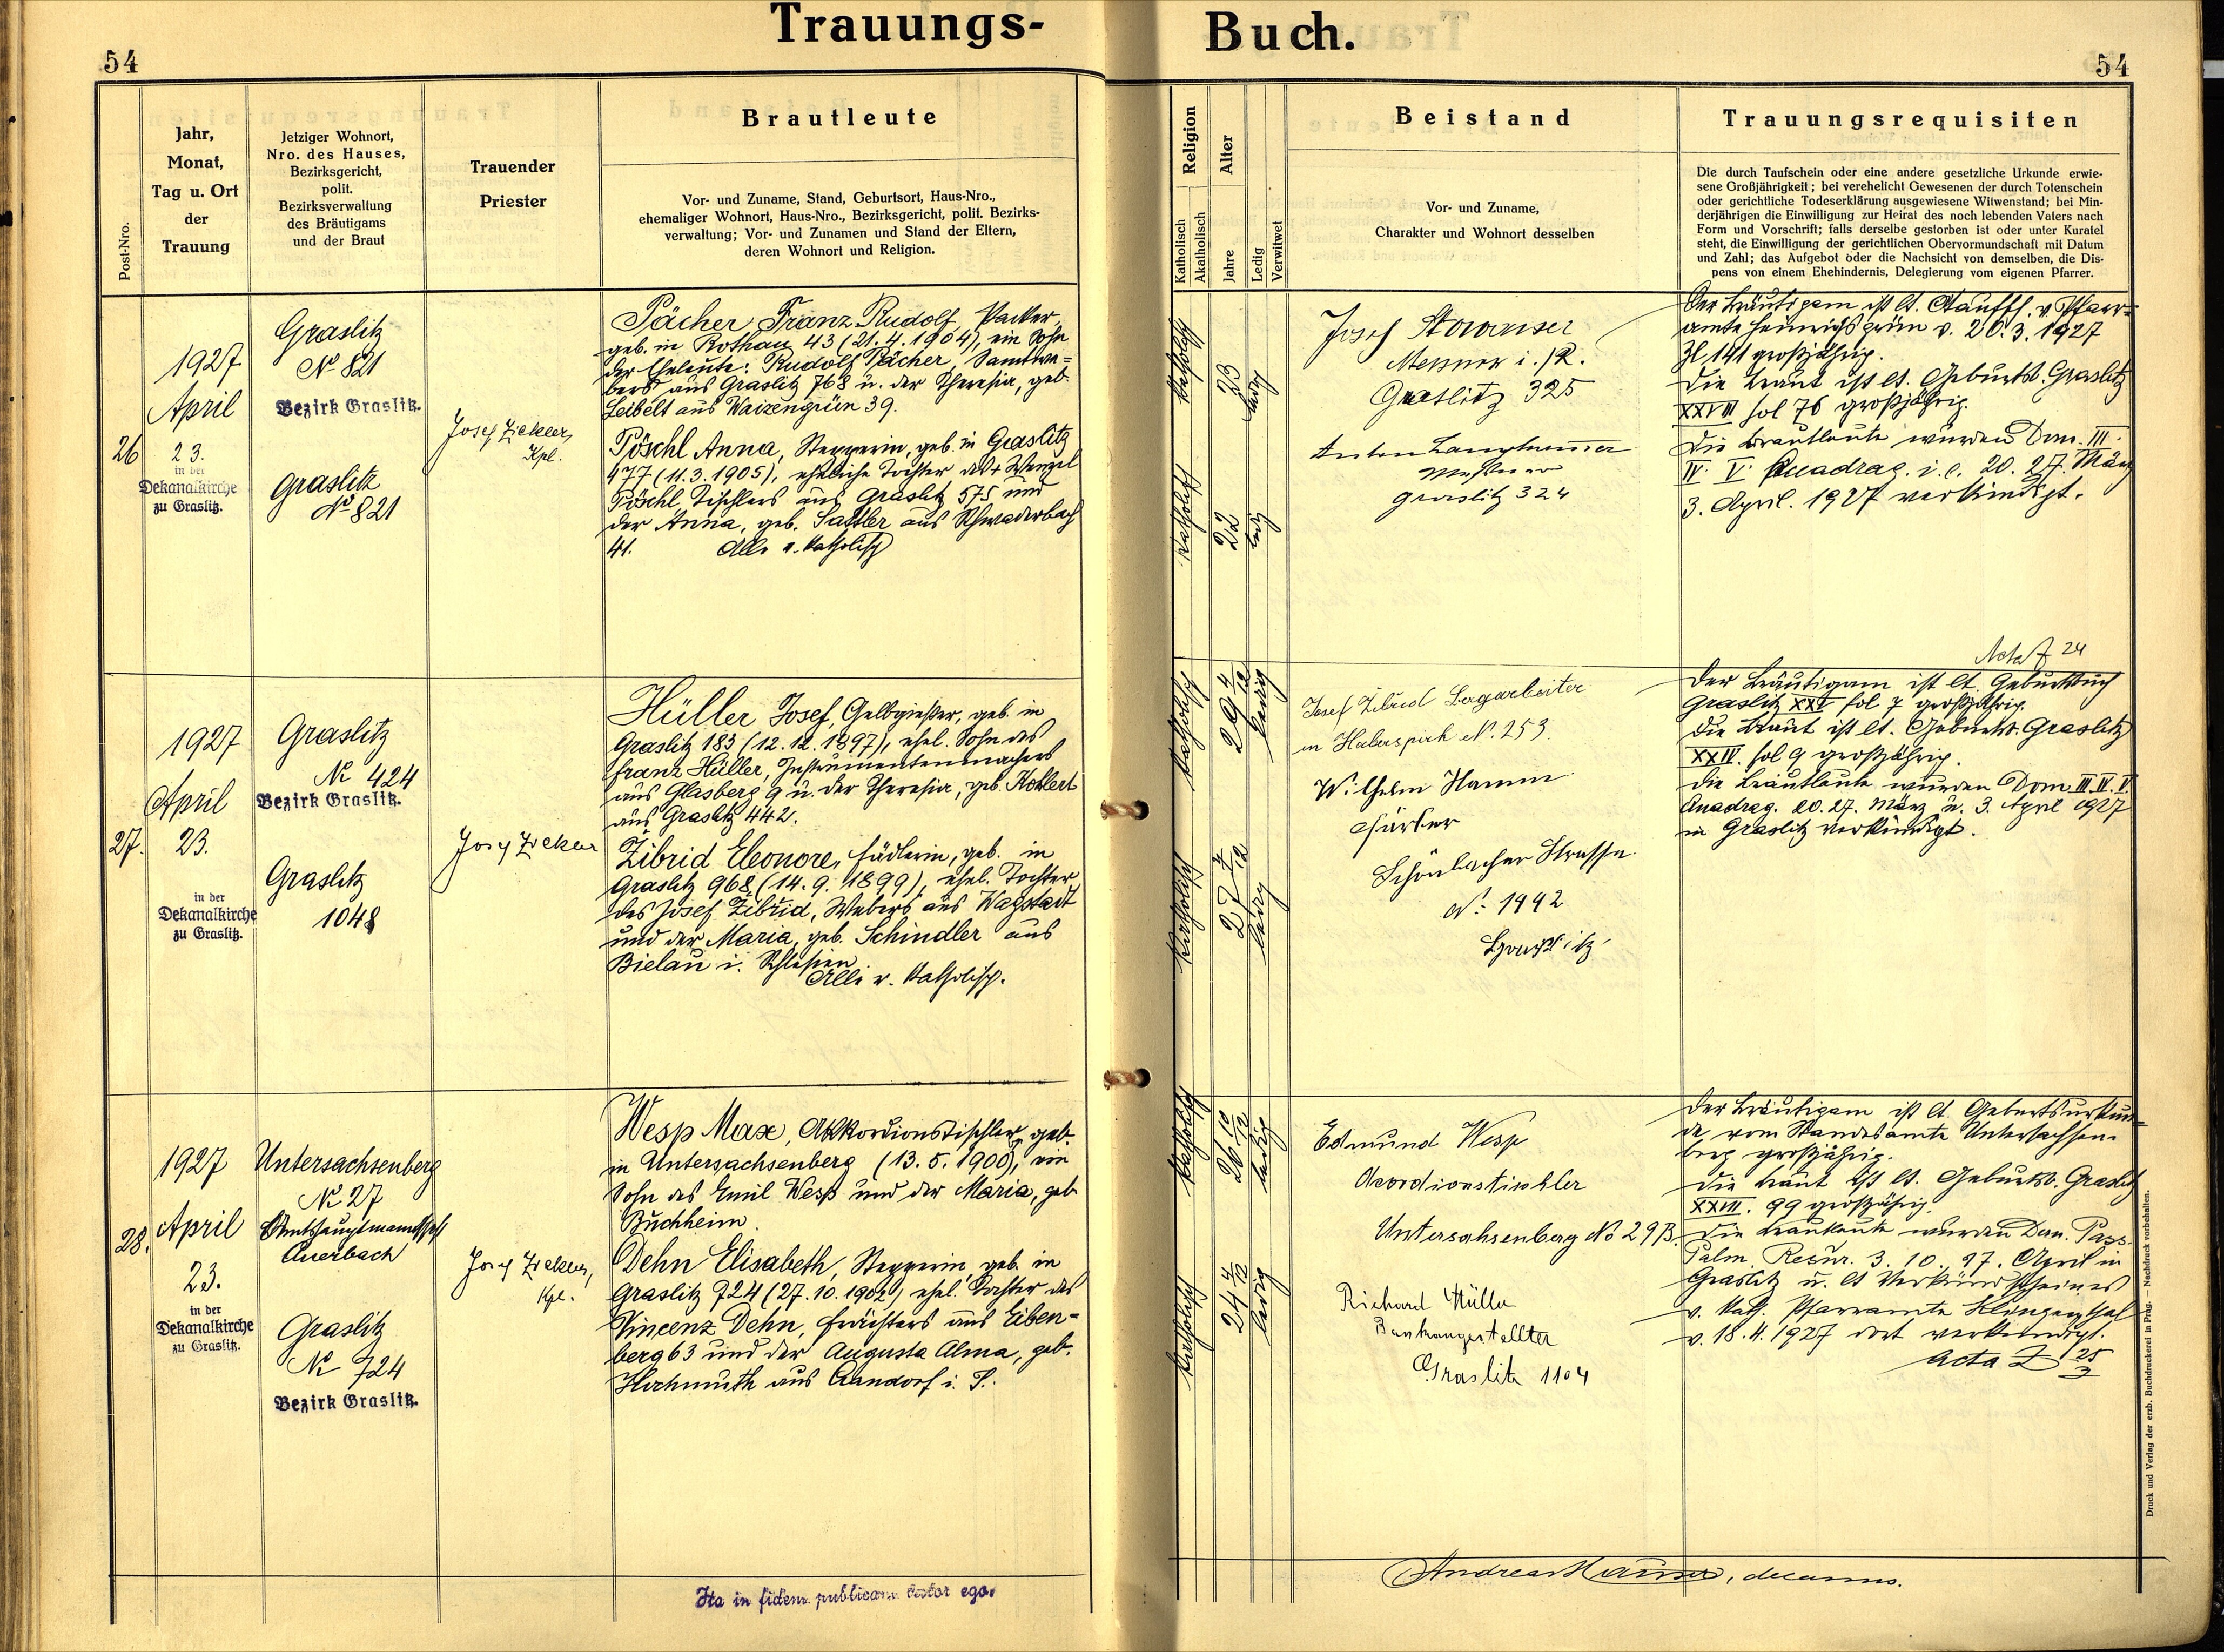 Trauungs-
Buch.
54
54
Post-Nro.
Jahr,
Monat,
Tag u. Ort
der
Trauung
Jetziger Wohnort,
Nro. des Hauses,
Bezirksgericht,
polit.
Bezirksverwaltung
des Bräutigams
und der Braut
Trauender
Priester
Brautleute
Vor- und Zuname, Stand, Geburtsort, Haus-Nro.,
ehemaliger Wohnort, Haus-Nro., Bezirksgericht, polit. Bezirks-
verwaltung; Vor- und Zunamen und Stand der Eltern,
deren Wohnort und Religion.
Religion
Katholisch
Akatholisch
Alter
Jahre
Ledig
Verwitwet
Beistand
Vor- und Zuname,
Charakter und Wohnort desselben
Trauungsrequisiten
Die durch Taufschein oder eine andere gesetzliche Urkunde erwie-
sene Großjährigkeit; bei verehelicht Gewesenen der durch Totenschein
oder gerichtliche Todeserklärung ausgewiesene Witwenstand; bei Min-
derjährigen die Einwilligung zur Heirat des noch lebenden Vaters nach
Form und Vorschrift; falls derselbe gestorben ist oder unter Kuratel
steht, die Einwilligung der gerichtlichen Obervormundschaft mit Datum
und Zahl; das Aufgebot oder die Nachsicht von demselben, die Dis-
pens von einem Ehehindernis, Delegierung vom eigenen Pfarrer.
26
1927
April
23.
in der
Dekanalkirche
zu Graslitz.
Graslitz
No 821
Bezirk Graslitz.
Graslitz
No 821
Josef Zickler,
Kpl.
Pächer Franz Rudolf, Packer,
geb. in Rothau 43 (21.4.1904), ein Sohn
der Eheleute: Rudolf Pächer, Samtwe-
bers aus Graslitz 768 u. der Theresia, geb.
Leibelt aus Waizengrün 39.
Pöschl Anna, Stepperin, geb. in Graslitz
477 (11.3.1905), eheliche Tochter des + Wenzel
Pöschl Tischlers aus Graslitz 575 und
der Anna, geb. Sattler aus Schwaderbach
41. Alle r. katholisch
katholisch
23
ledig
katholisch
22
ledig
Josef
Messner i./R.
Graslitz 325
Anton
Messner
Graslitz 324
Der Bräutigam ist lt. Taufsch. v. Pfarr-
amte Heinrichsgrün v. 20.3.1927
Zl 141 großjährig.
Die Braut ist lt. Geburtsb. Graslitz
XXVIII fol 76 großjährig.
Die Brautleute wurden Dom. III.
IV. V. Quadrag. i.e. 20. 27. März
3. April. 1927 verkündigt.
27.
1927
April
23.
in der
Dekanalkirche
zu Graslitz.
Graslitz
No 424
Bezirk Graslitz.
Graslitz
1048
Josef Zickler
Hüller Josef, Gelbgießer, geb. in
Graslitz 183 (12.12.1897), ehel. Sohn des
Franz Hüller, Instrumentenmachers
aus Glasberg 9 u. der Theresia, geb. Kohlert
aus Graslitz 442.
Zibrid Eleonore, Fädlerin, geb. in
Graslitz 968 (14.9.1899), ehel. Tochter
des Josef Zibrid, Webers aus Wagstadt
und der Maria, geb. Schindler aus
Bielau i. Schlesien.
Alle r. katholisch.
katholisch
29 4/12
ledig
katholisch
27 7/12
ledig
Josef Zibrid Sagarbeiter
in Haberspirk N. 253.
Wilhelm Hamm
Färber
Schönbacher Strasse
No. 1442
Graslitz
Acta Z 24
Der Bräutigam ist lt. Geburtsbuch
Graslitz XXV fol 7 großjährig.
Die Braut ist lt. Geburtsb. Graslitz
XXIV. fol 9 großjährig.
Die Brautleute wurden Dom. III. IV. V.
Quadrag. 20. 27. März u. 3. April 1927
in Graslitz verkündigt.
28.
1927
April
23.
in der
Dekanalkirche
zu Graslitz.
Untersachsenberg
No 27
Amtshauptmannschaft
Auerbach
Graslitz
No 724
Bezirk Graslitz.
Josef Zickler,
Kpl.
Wesp Max, Akkordionstischler, geb.
in Untersachsenberg (13.5.1900), ein
Sohn des Emil Wesp und der Maria, geb.
Buchheim.
Dehn Elisabeth, Stepperin, geb. in
Graslitz 724 (27.10.1902) ehel. Tochter des
Vincenz Dehn, aus Eiben-
berg 63 und der Augusta Alma, geb.
Hochmuth aus i. S.
katholisch
26 10/12
ledig
katholisch
24 4/12
ledig
Edmund Wesp
Akordionstischler
Untersachsenberg No 29B.
Richard Hüller
Bankangestellter
Graslitz 1104
Der Bräutigam ist lt. Geburtsurkun-
de vom Standesamte Untersachsen-
berg großjährig.
Die Braut ist lt. Geburtsb. Graslitz
XXVII. 99 großjährig.
Die Brautleute wurden Dom. Pass.
Palm. Resur. 3. 10. 17. April in
Graslitz u. lt Verkündscheines
v. kath. Pfarramte Klingenthal
v. 18.4.1927 dort verkündigt.
Acta Z 25/3
Ita in fidem publicam testor ego.
Andreas Hauser, decanus.
Druck und Verlag der erzb. Buchdruckerei in Prag. — Nachdruck vorbehalten.